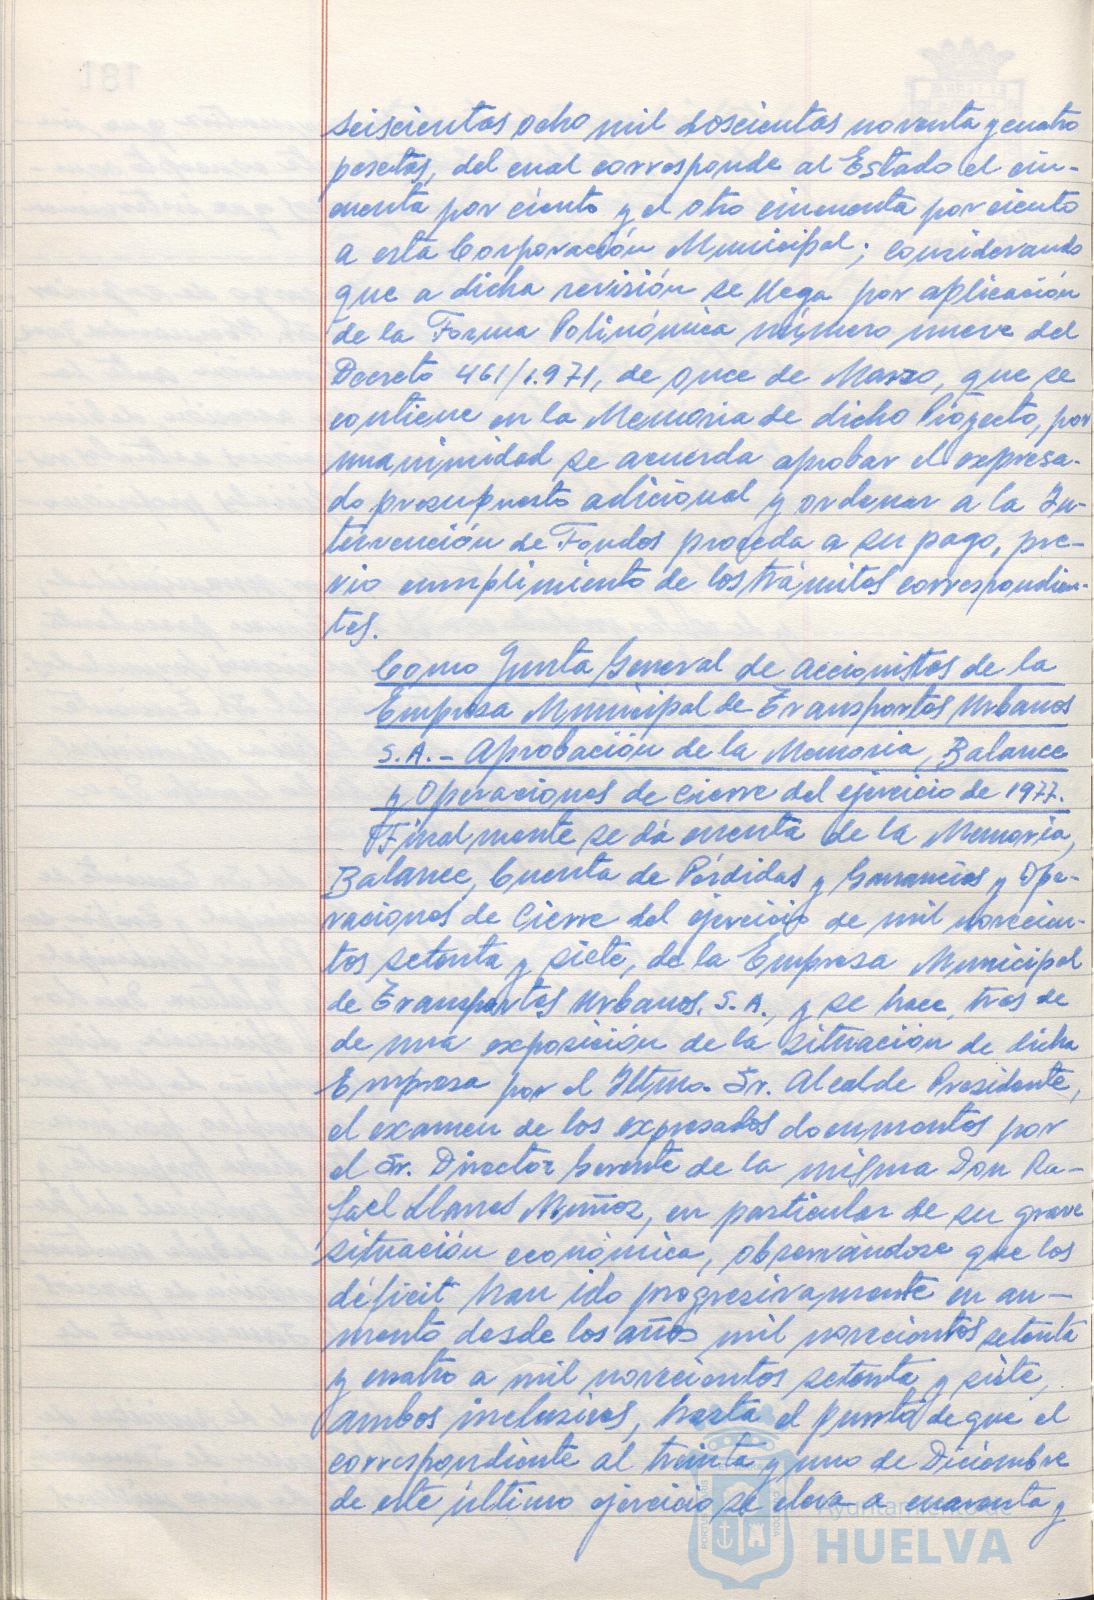 seiscientas ocho mil doscientas noventa y cuatro
pesetas, del cual corresponde al Estado el cin-
cuenta por ciento y el otro cincuenta por ciento
a esta Corporación Municipal; considerando
que a dicha revisión se llega por aplicación
de la Forma Polinómica número nueve del
Decreto 461/1.971, de once de Marzo, que se
contiene en la Memoria de dicho Proyecto, por
unanimidad se acuerda aprobar el expresa-
do presupuesto adicional y ordenar a la In-
tervención de Fondos proceda a su pago, pre-
vio cumplimiento de los trámites correspondien-
tes.
Como Junta General de Accionistas de la
Empresa Municipal de Transportes Urbanos
S.A.- Aprobación de la Memoria, Balance
y Operaciones de cierre del ejercicio de 1977.
Finalmente se dá cuenta de la Memoria,
Balance, Cuenta de Pérdidas y Ganancias y Ope-
raciones de Cierre del ejercicio de mil novecien-
tos setenta y siete, de la Empresa Municipal
de Transportes Urbanos. S.A., y se hace, tras de
de una exposición de la situación de dicha
Empresa por el Iltmo. Sr. Alcalde Presidente,
el examen de los expresados documentos por
el Sr. Director Gerente de la misma Don Ra-
fael Llanes Muñoz, en particular de su grave
situación económica, observándose que los
déficit han ido progresivamente en au-
mento desde los años mil novecientos setenta
y cuatro a mil novecientos setenta y siete,
ambos inclusives, hasta el punto de que el
correspondiente al treinta y uno de Diciembre
de este último ejercicio se eleva a cuarenta y
Ayuntamiento de
HUELVA